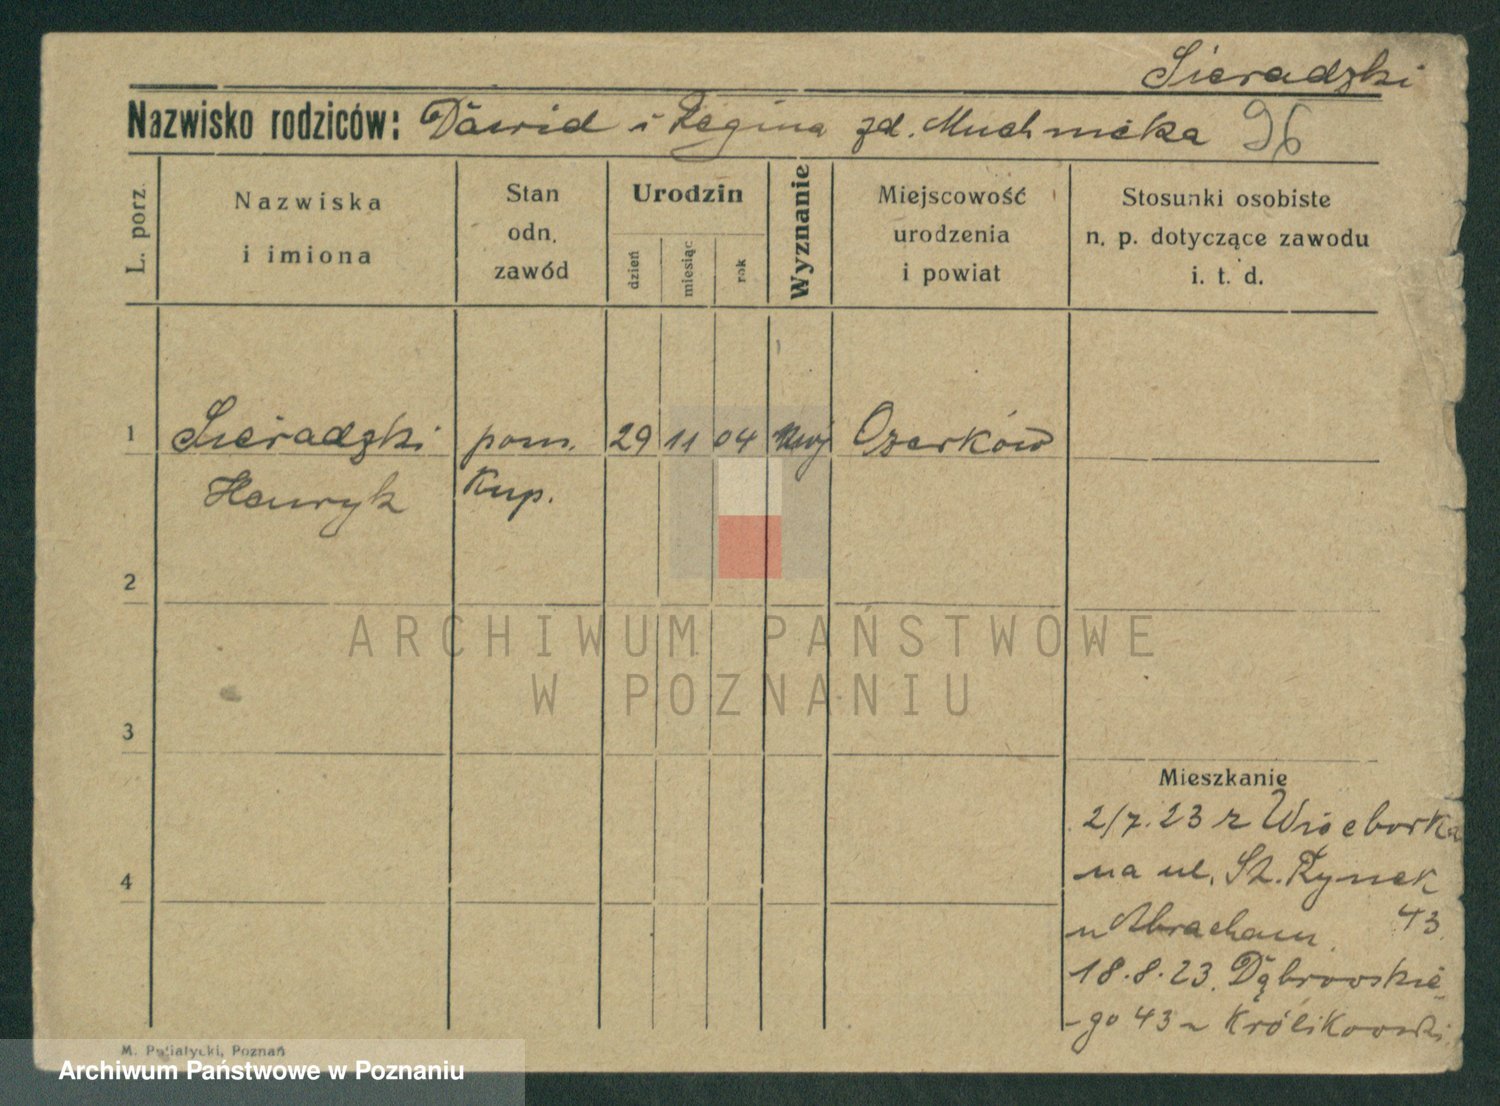 Sieradzki
Nazwisko rodziców: Dawid i Regina zd. Muchnicka 96
L. porz.
Nazwiska
i imiona
Stan
odn.
zawód
Urodzin
dzień
miesiąc
rok
Wyznanie
Miejscowość
urodzenia
i powiat
Stosunki osobiste
n. p. dotyczące zawodu
i. t. d.
1 Sieradzki pom. 29 11 04 Ozorków
Henryk kup.
2
ARCHIWUM PAŃSTWOWE
W POZNANIU
3
Mieszkanie
2/7.23 z Więcborka
na ul. St. Rynek
43
u Abraham.
4
18.8.23. Dąbrowskie-
-go 43 u Królikowski
M. Pujiałycki, Poznań
Archiwum Państwowe w Poznaniu